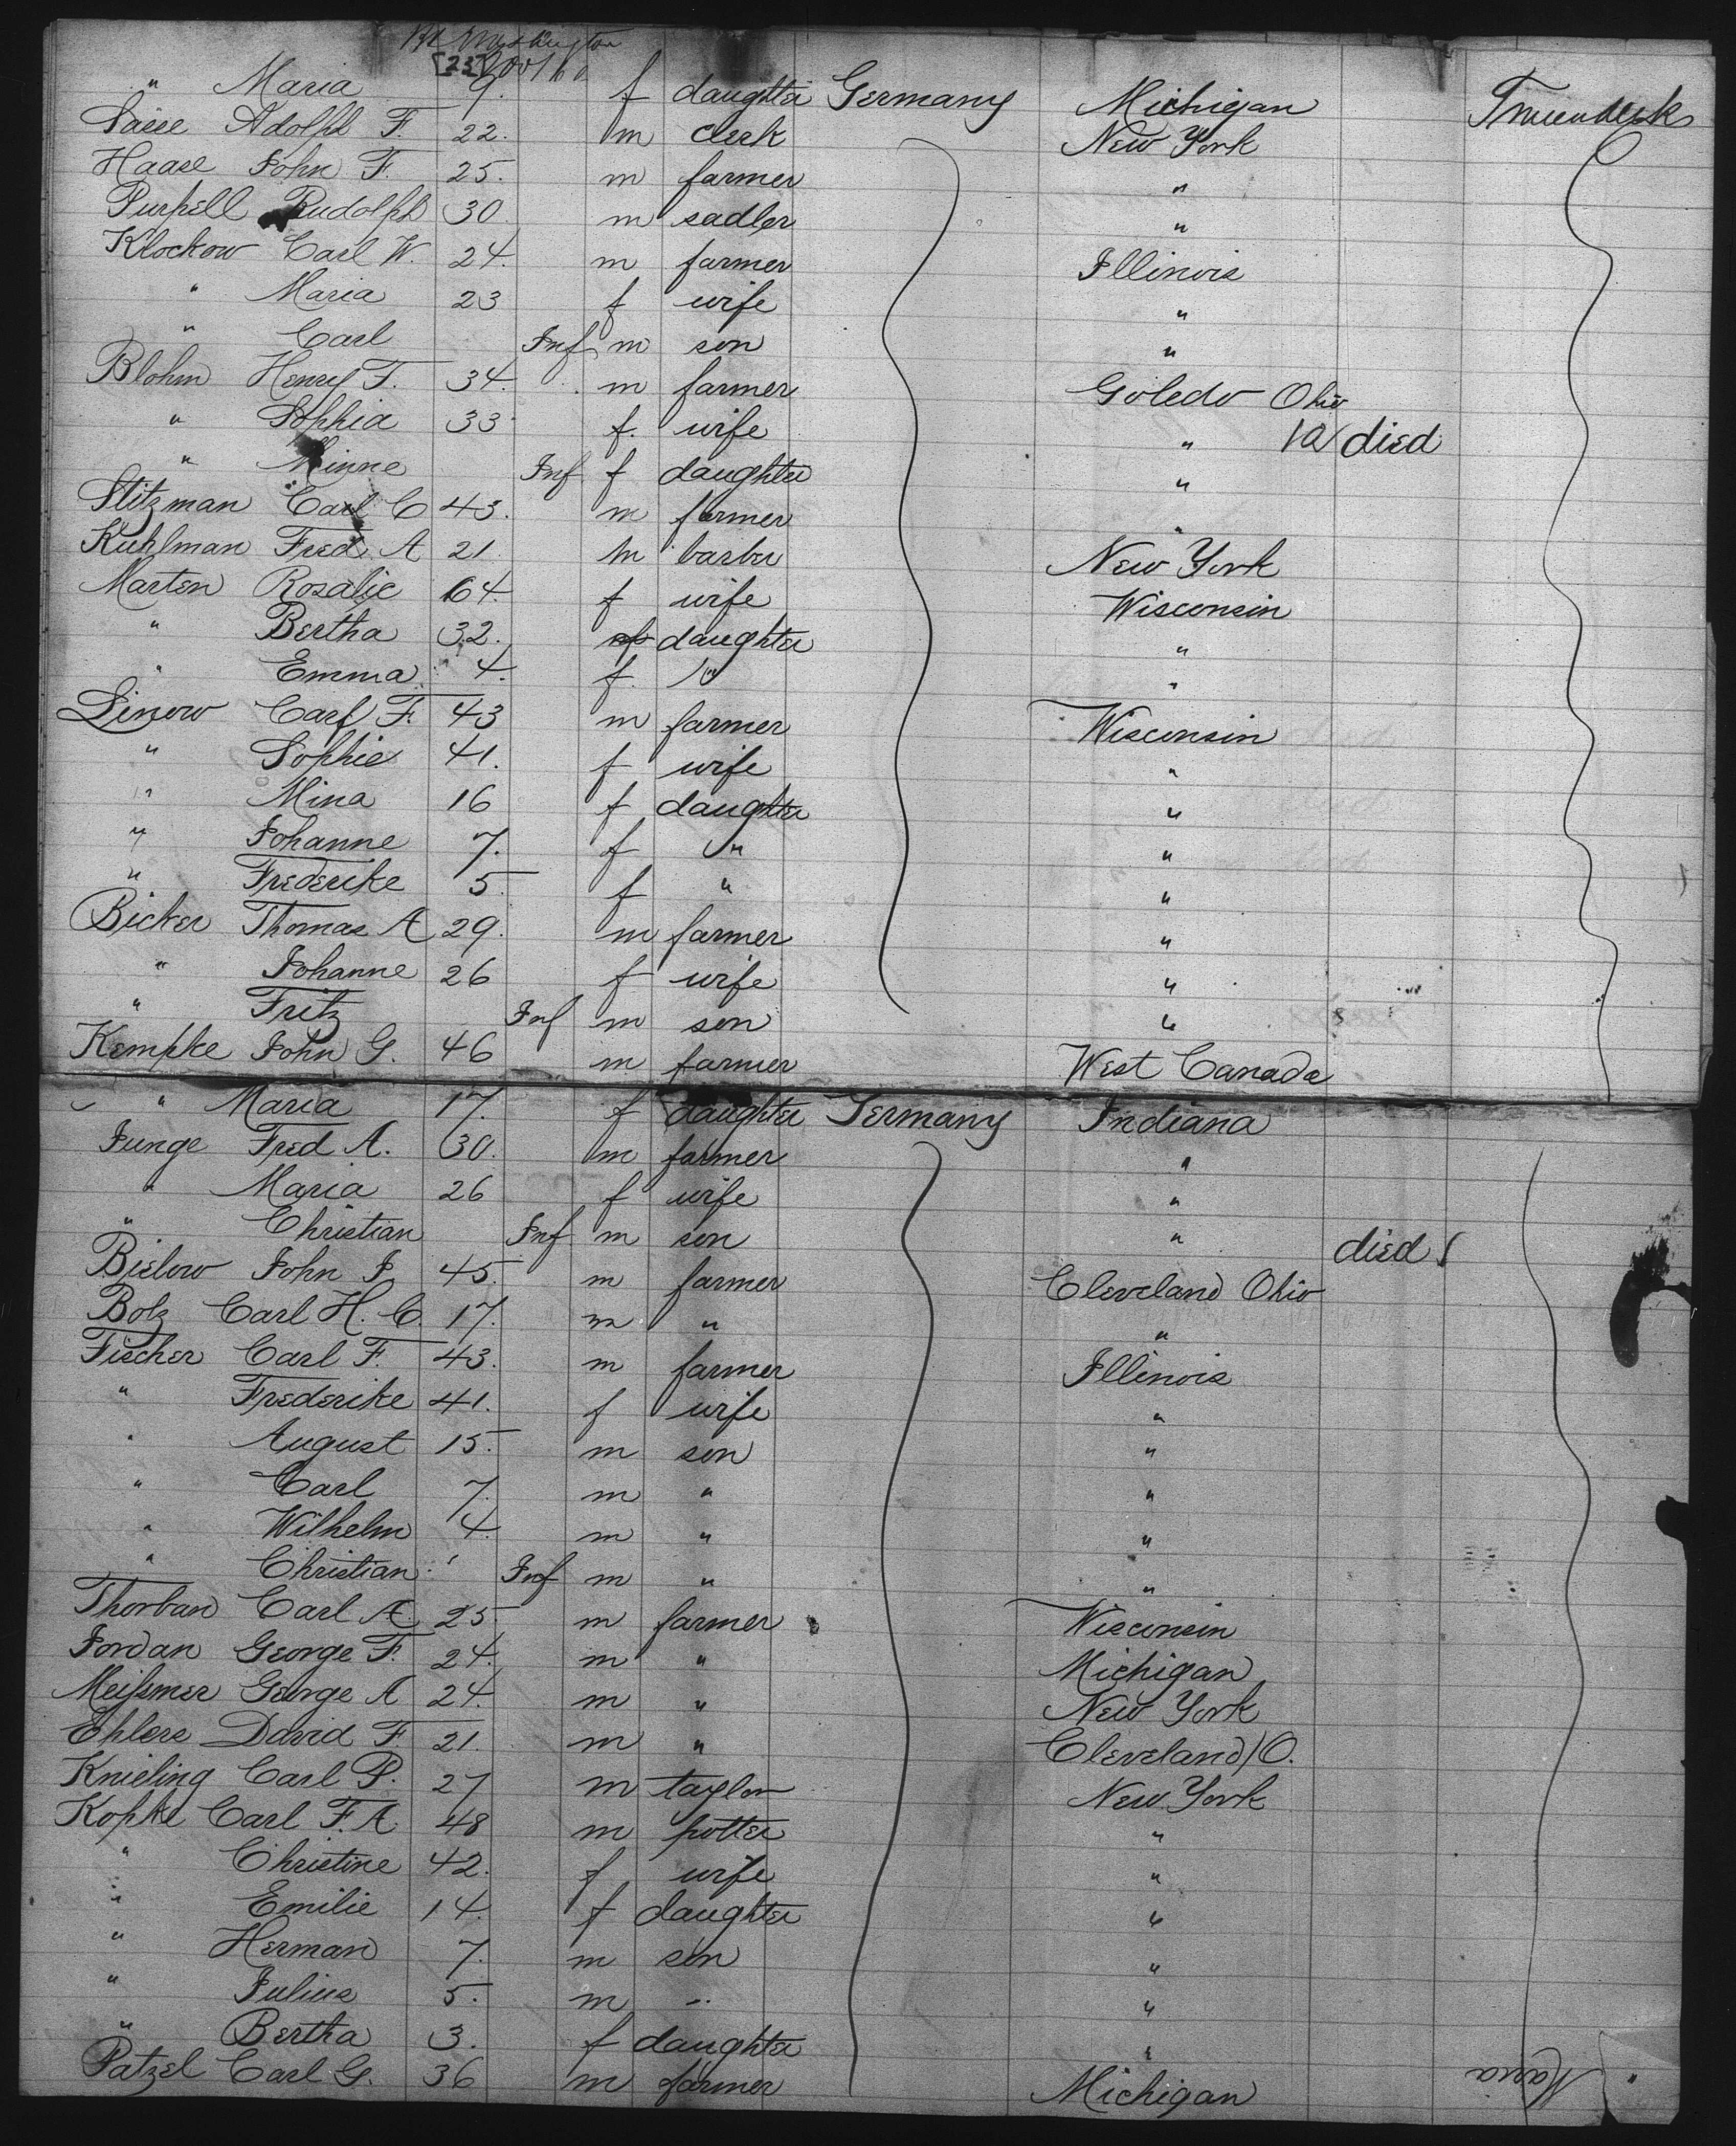 " Maria 9. f daughter Germany Michigan
Sasse Adolph F. 22. m clerk New York
Haase John F. 25. m farmer "
Purpell Rudolph 30 m sadler "
Klockow Carl W. 24. m farmer Illinois
" Maria 23 f wife "
" Carl Inf m son "
Blohm Henry F. 34. m farmer Toledo Ohio
" Sophia 33 f. wife " died
" Minne Inf f daughter "
Stitzman Carl C 43. m farmer "
Kuhlman Fred. A 21. m barber New York
Marten Rosalie 64. f wife Wisconsin
" Bertha 32. f daughter "
" Emma 4. f. " "
Linow Carl F. 43 m farmer Wisconsin
" Sophie 41. f wife "
" Mina 16 f daughter "
" Johanne 7. f " "
" Frederike 5. f " "
Bicker Thomas A 29. m farmer "
" Johanne 26 f wife "
" Fritz Inf m son "
Kempke John G. 46 m farmer West Canada
" Maria 17. f daughter Germany Indiana
Junge Fred A. 30. m farmer "
" Maria 26 f wife "
" Christian Inf m son " died
Bielow John J 45. m farmer Cleveland Ohio
Bolz Carl H. C. 17. m " "
Fischer Carl F. 43. m farmer Illinois
" Frederike 41. f wife "
" August 15. m son "
" Carl 7. m " "
" Wilhelm 4. m " "
" Christian Inf m " "
Thorban Carl A. 25. m farmer Wisconsin
Jordan George F. 24. m " Michigan
Meißmer George A 24. m " New York
Ehlers David F. 21. m " Cleveland/O.
Knieling Carl P. 27 m taylor New York
Kopke Carl F. A 48 m potter "
" Christine 42. f wife "
" Emilie 14. f daughter "
" Herman 7. m son "
" Julius 5. m " "
" Bertha 3. f daughter "
Patzel Carl G. 36 m farmer Michigan
" Maria